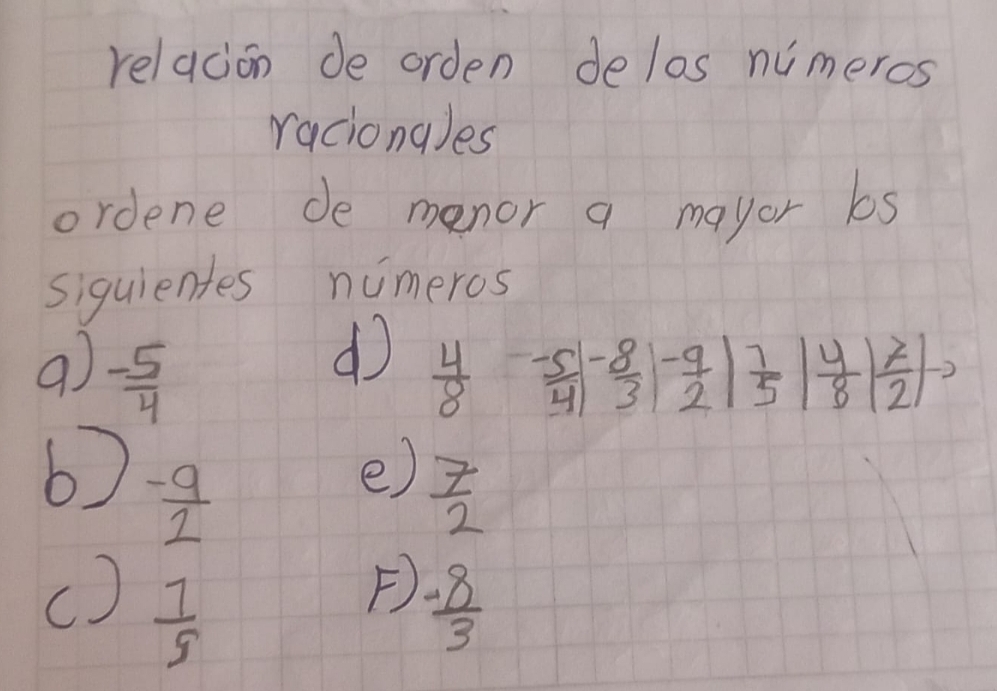 relación de orden de los números
racionales
ordene de menor a mayor los
siguientes números
a) -5/4 d) 4/8 -5/4 | -8/3 | -9/2 | 1/5 | 4/8 | 7/2 | →
b) -9/2 e) 7/2
c) 1/5 F) -8/3